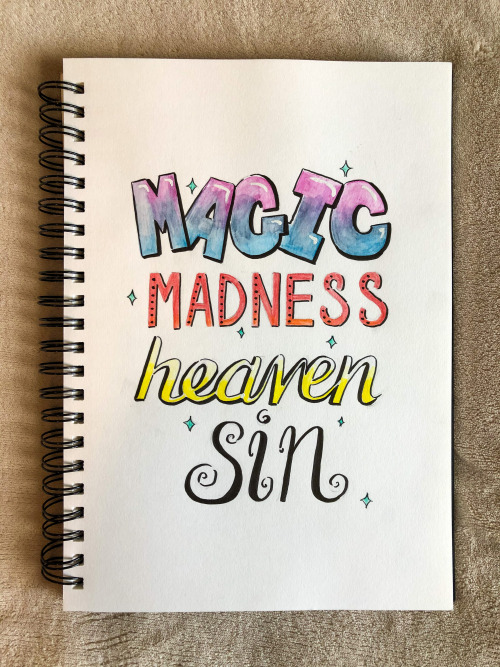 MAGIC
MADNESS
heaven
sin